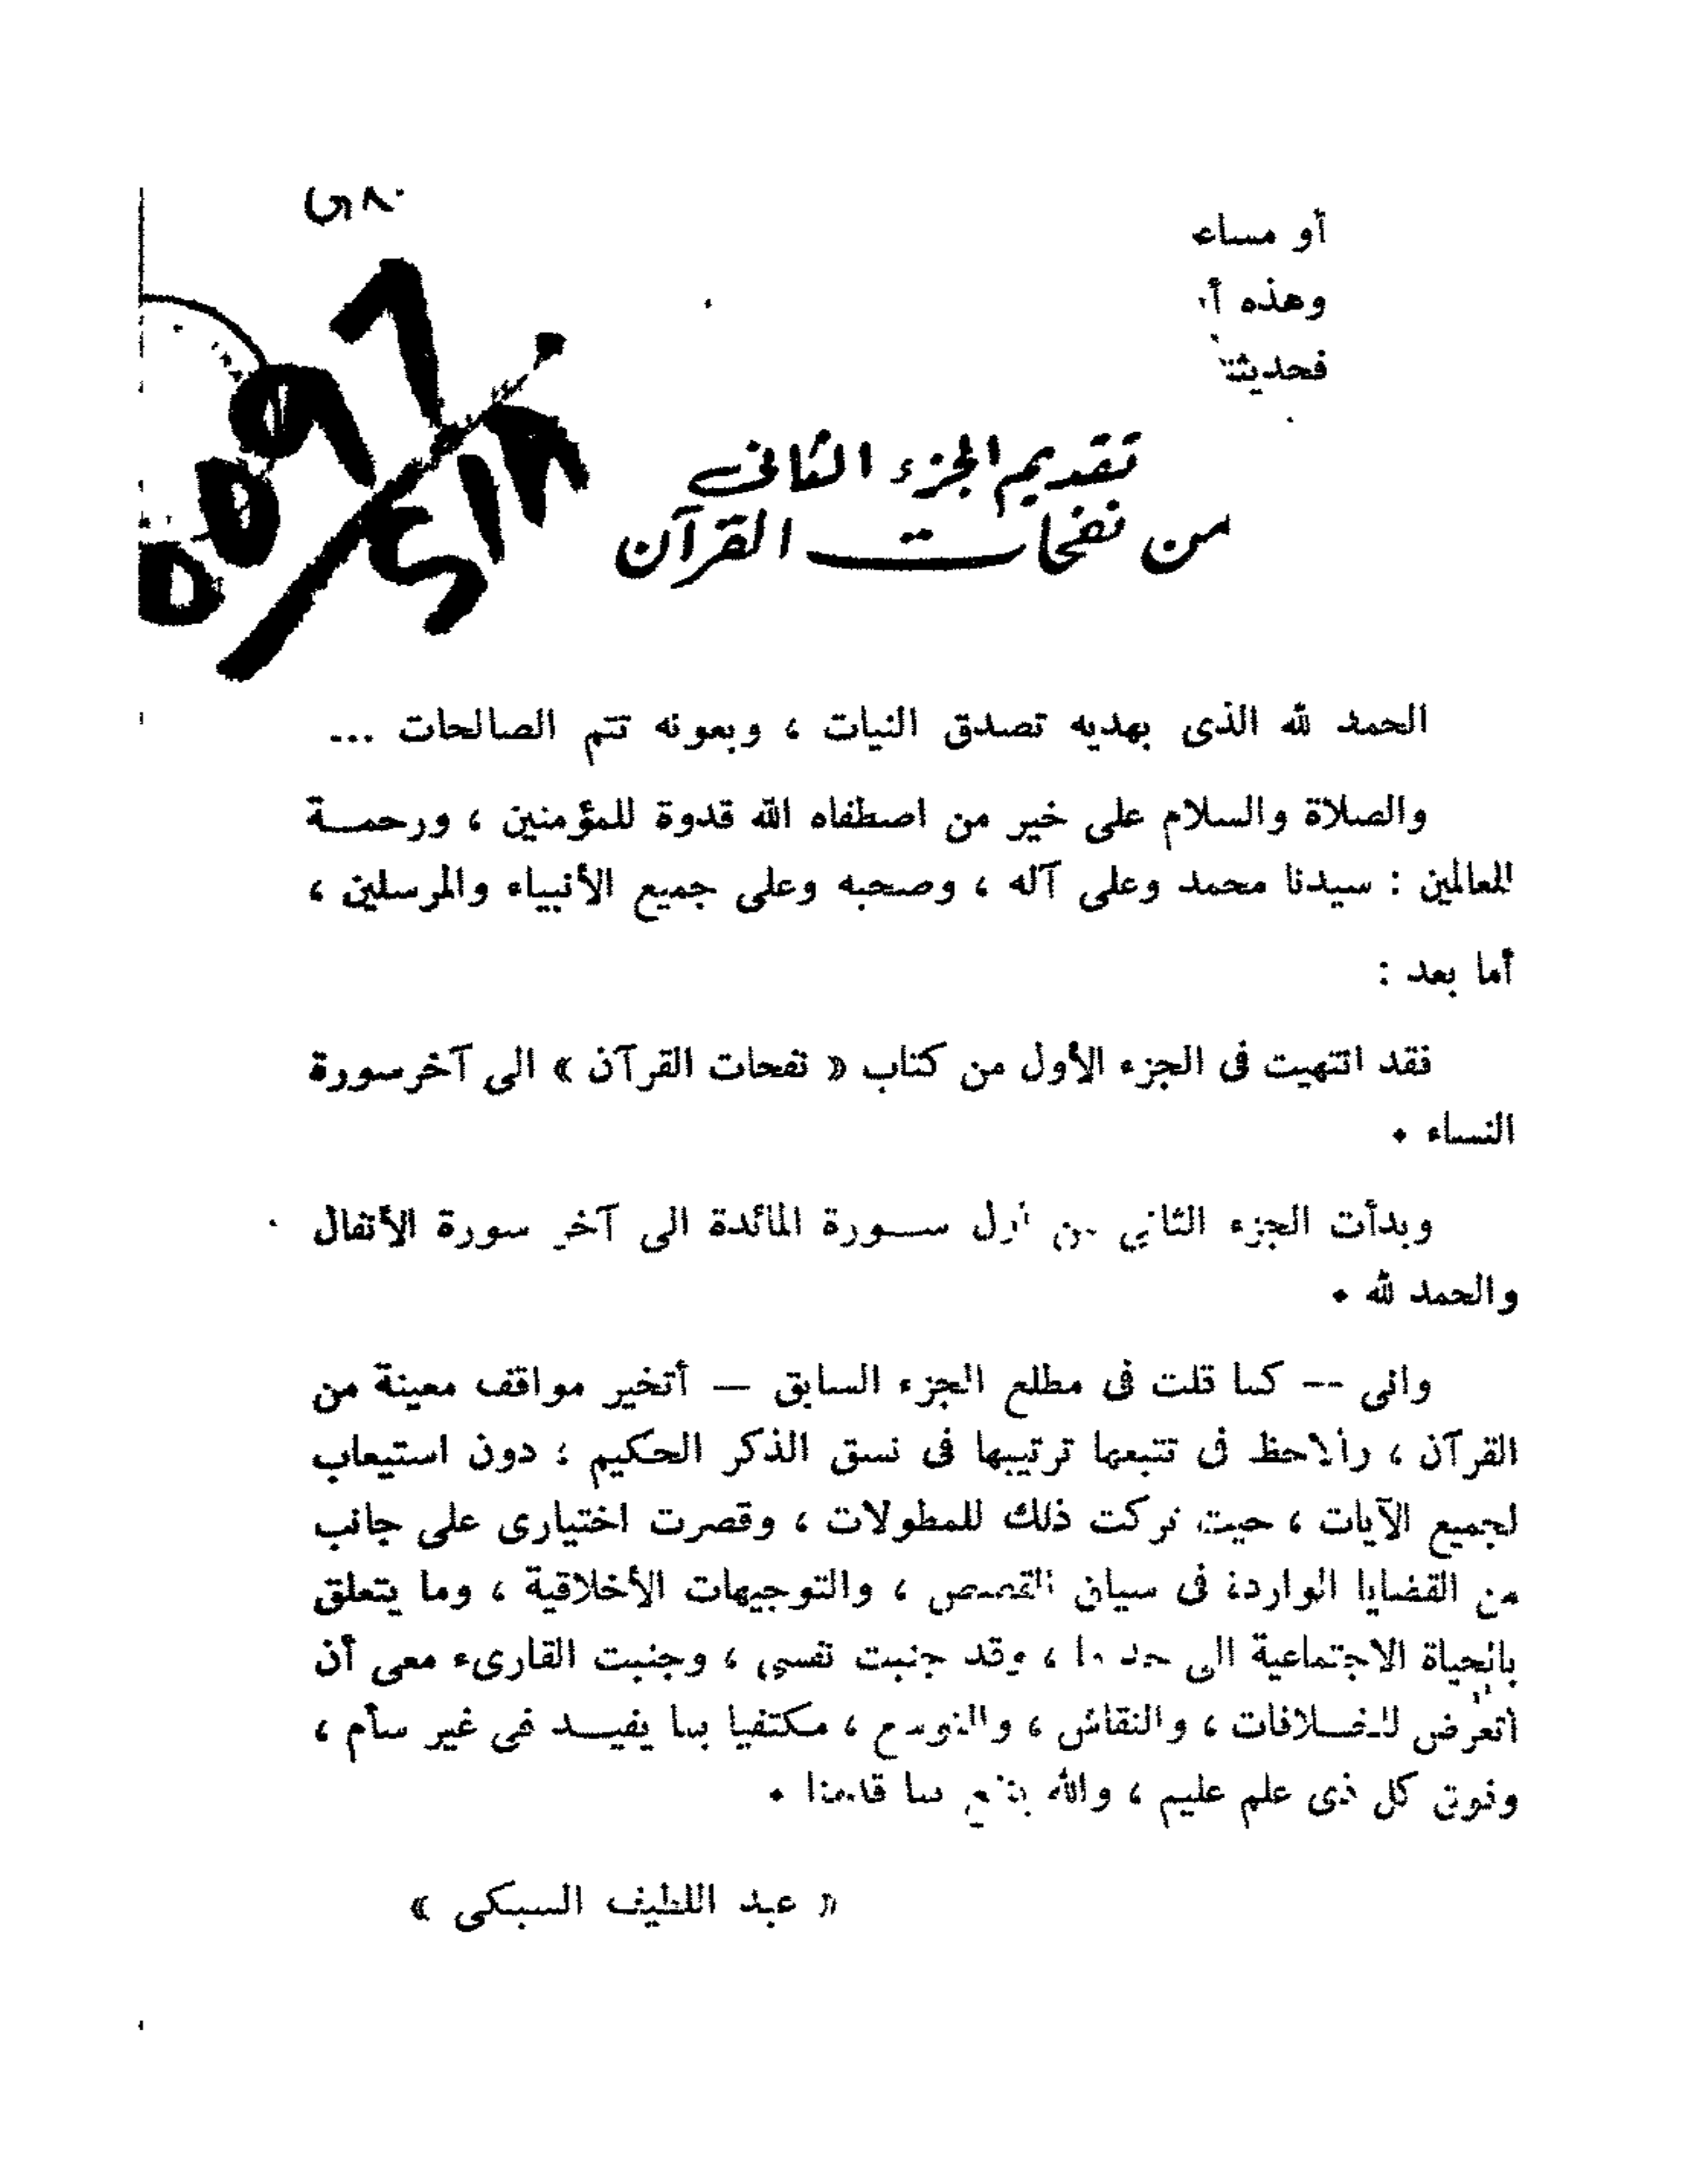 أو مساء
وهذه
تقديم الجزء الثانى
من نفحات القرآن
الحمد لله الذى بهديه تصدق النيات ، وبعونه تتم الصالحات ...
والصلاة والسلام على خير من اصطفاه الله قدوة للمؤمنين ، ورحمة
للعالمين : سيدنا محمد وعلى آله ، وصحبه وعلى جميع الأنبياء والمرسلين ،
أما بعد :
فقد انتهيت فى الجزء الأول من كتاب « نفحات القرآن » الى آخر سورة
النساء .
وبدأت الجزء الثانى من أول سورة المائدة الى آخر سورة الأنفال
والحمد لله .
وانى — كما قلت فى مطلع الجزء السابق — أتخير مواقف معينة من
القرآن ، وألاحظ فى تتبعها ترتيبها فى نسق الذكر الحكيم ، دون استيعاب
لجميع الآيات ، حيث تركت ذلك للمطولات ، وقصرت اختيارى على جانب
من القضايا الواردة فى سياق القصص ، والتوجيهات الأخلاقية ، وما يتعلق
بالحياة الاجتماعية الى حد ما ، وقد جنبت نفسى ، وجنبت القارىء معى أن
أتعرض للخلافات ، والنقاش ، والتوسع ، مكتفيا بما يفيد فى غير سأم ،
وفوق كل ذى علم عليم ، والله ينفع بما قدمنا .
« عبد اللطيف السبكى »